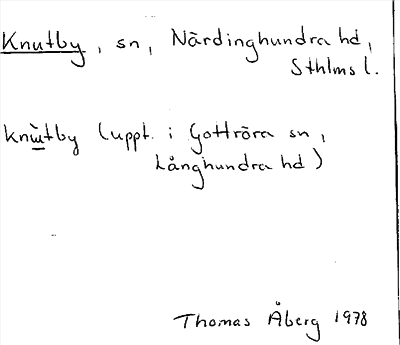 Knutby, sn, Närdinghundra hd,
Sthlms l.
knùtby (uppt. i Gottröra sn,
Långhundra hd)
Thomas Åberg 1978